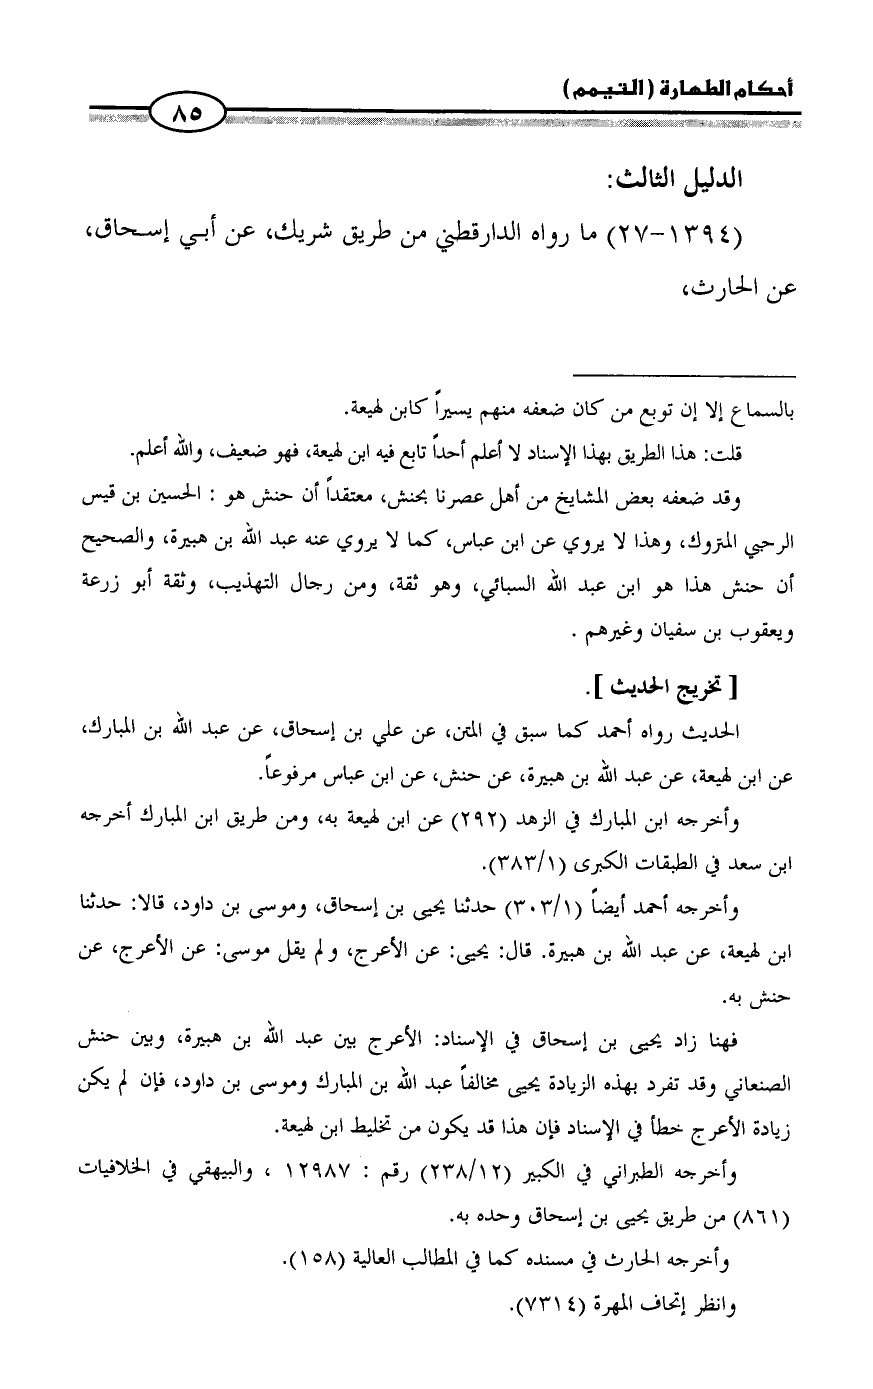 أحكام الطهارة (التيمم)
٨٥
الدليل الثالث:
(١٣٩٤-٢٧) ما رواه الدارقطني من طريق شريك، عن أبي إسحاق،
عن الحارث،
بالسماع إلا إن توبع من كان ضعفه منهم يسيراً كابن لهيعة.
قلت: هذا الطريق بهذا الإسناد لا أعلم أحداً تابع فيه ابن لهيعة، فهو ضعيف، والله أعلم.
وقد ضعفه بعض المشايخ من أهل عصرنا بحنش، معتقداً أن حنش هو : الحسين بن قيس
الرحبي المتروك، وهذا لا يروي عن ابن عباس، كما لا يروي عنه عبد الله بن هبيرة، والصحيح
أن حنش هذا هو ابن عبد الله السبائي، وهو ثقة، ومن رجال التهذيب، وثقة أبو زرعة
ويعقوب بن سفيان وغيرهم .
[ تخريج الحديث ].
الحديث رواه أحمد كما سبق في المتن، عن علي بن إسحاق، عن عبد الله بن المبارك،
عن ابن لهيعة، عن عبد الله بن هبيرة، عن حنش، عن ابن عباس مرفوعاً.
وأخرجه ابن المبارك في الزهد (٢٩٢) عن ابن لهيعة به، ومن طريق ابن المبارك أخرجه
ابن سعد في الطبقات الكبرى (٣٨٣/١).
وأخرجه أحمد أيضاً (٣٠٣/١) حدثنا يحيى بن إسحاق، وموسى بن داود، قالا: حدثنا
ابن لهيعة، عن عبد الله بن هبيرة. قال: يحيى: عن الأعرج، ولم يقل موسى: عن الأعرج، عن
حنش به.
فهنا زاد يحيى بن إسحاق في الإسناد: الأعرج بين عبد الله بن هبيرة، وبين حنش
الصنعاني وقد تفرد بهذه الزيادة يحيى مخالفاً عبد الله بن المبارك وموسى بن داود، فإن لم يكن
زيادة الأعرج خطأ في الإسناد فإن هذا قد يكون من تخليط ابن لهيعة.
وأخرجه الطبراني في الكبير (٢٣٨/١٢) رقم : ١٢٩٨٧ ، والبيهقي في الخلافيات
(٨٦١) من طريق يحيى بن إسحاق وحده به.
وأخرجه الحارث في مسنده كما في المطالب العالية (١٥٨).
وانظر إتحاف المهرة (٧٣١٤).